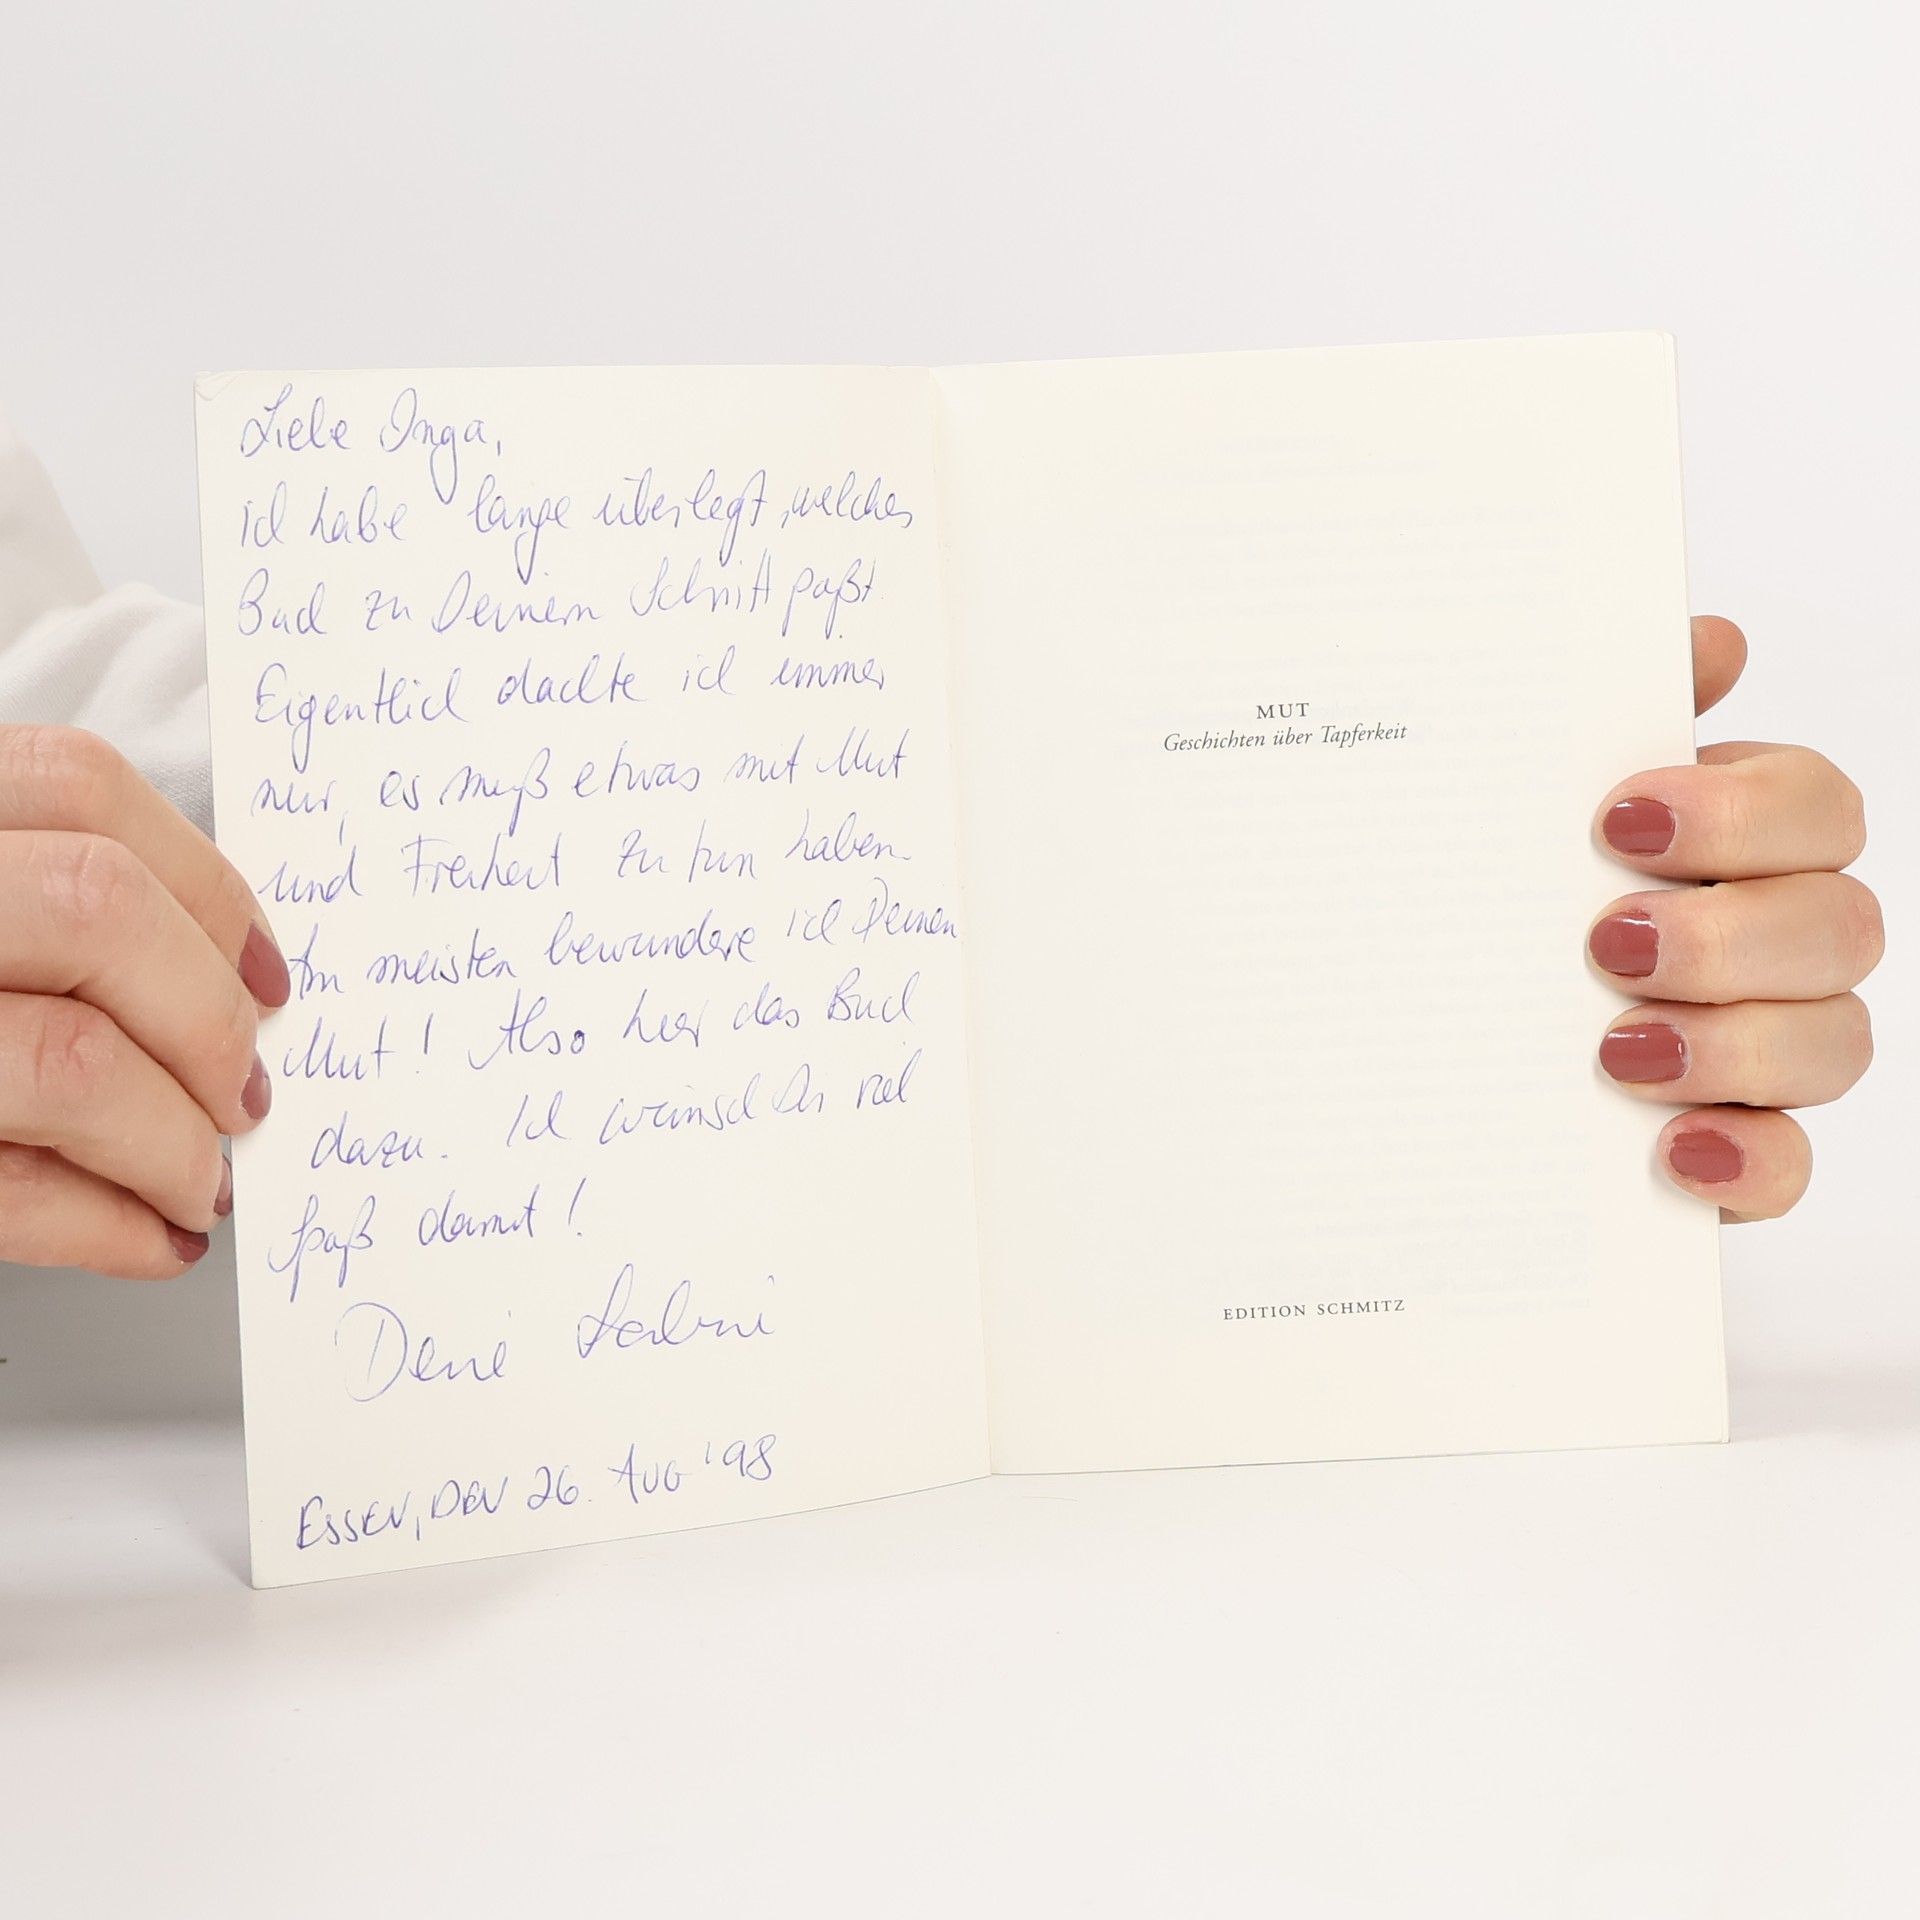 Liebe Inga,
ich habe lange überlegt, welches
Buch zu Deinem Schritt paßt.
Eigentlich dachte ich immer
nur, es muß etwas mit Mut
und Freiheit zu tun haben.
Am meisten bewundere ich Deinen
Mut! Also hier das Buch
dazu. Ich wünsch Dir viel
Spaß damit!
Deine
ESSEN, DEN 26. AUG '98
MUT
Geschichten über Tapferkeit
EDITION SCHMITZ